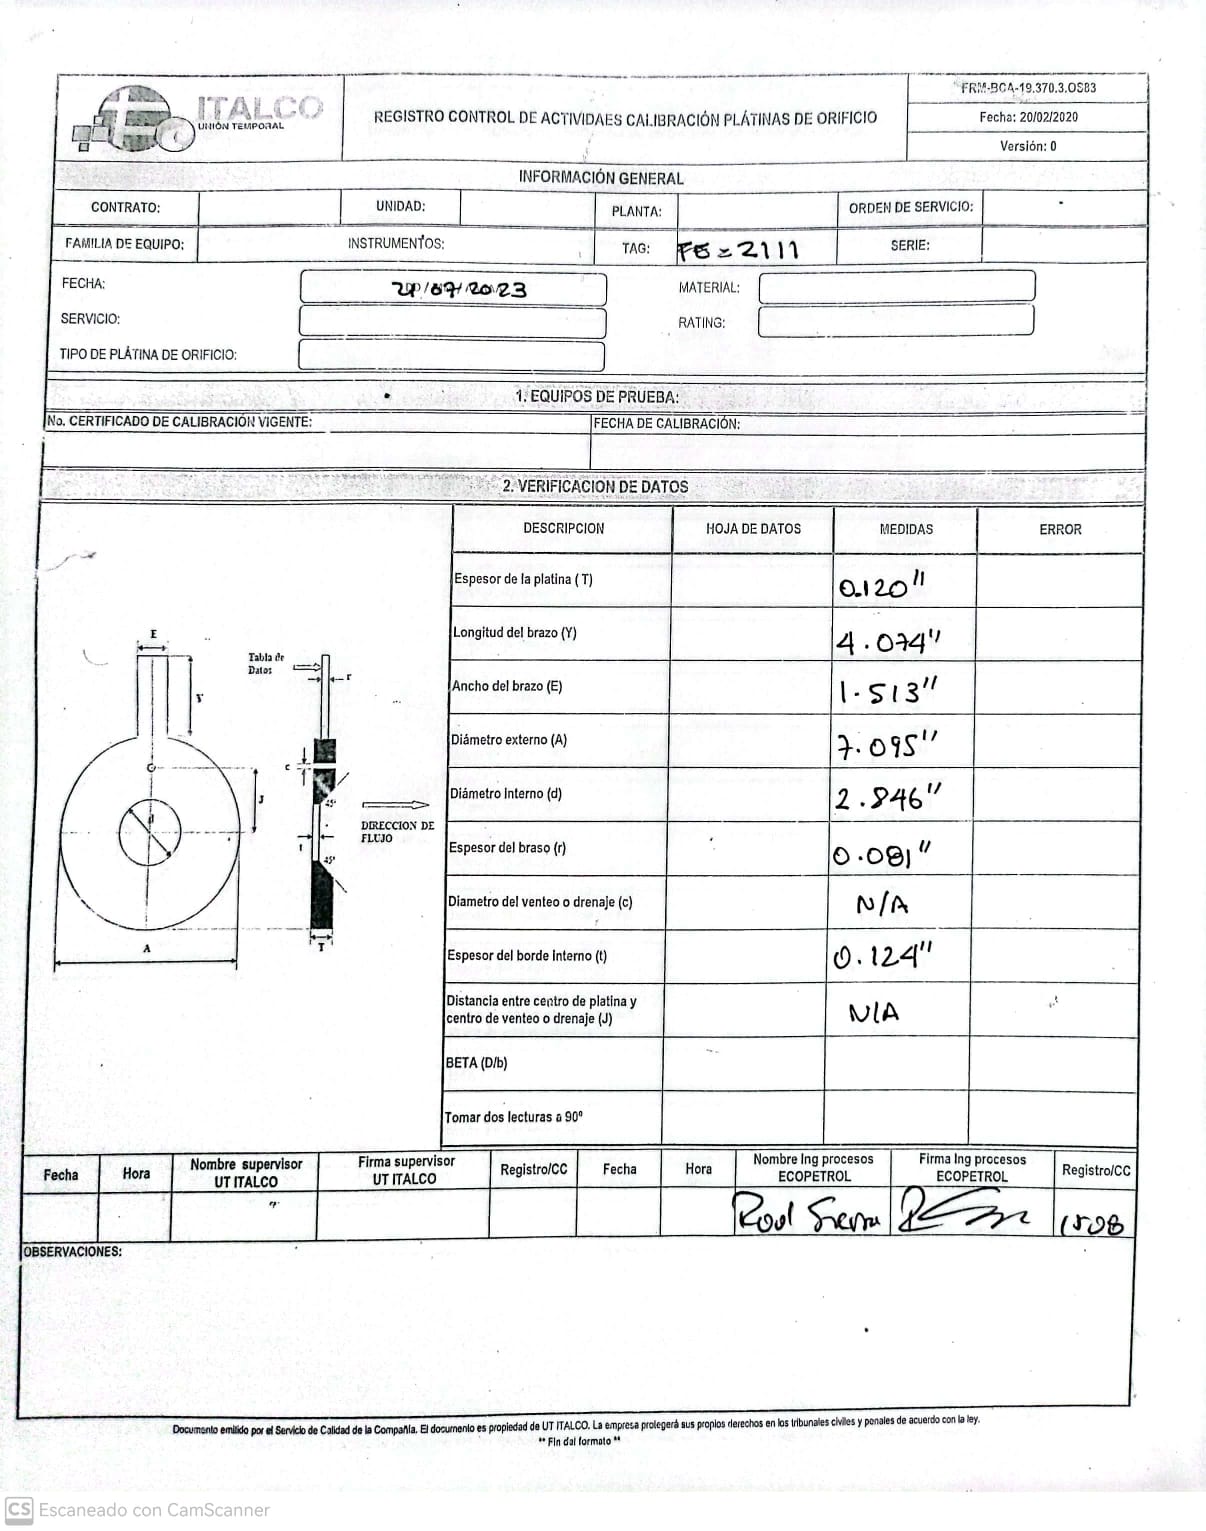 ITALCO
UNIÓN TEMPORAL
REGISTRO CONTROL DE ACTIVIDAES CALIBRACIÓN PLÁTINAS DE ORIFICIO
FRM-BCA-19.370.3.OS83
Fecha: 20/02/2020
Versión: 0
INFORMACIÓN GENERAL
CONTRATO: UNIDAD: PLANTA: ORDEN DE SERVICIO:
FAMILIA DE EQUIPO: INSTRUMENTOS: TAG: FE = 2111 SERIE:
FECHA: /07/2023 MATERIAL:
SERVICIO: RATING:
TIPO DE PLÁTINA DE ORIFICIO:
1. EQUIPOS DE PRUEBA:
No. CERTIFICADO DE CALIBRACIÓN VIGENTE: FECHA DE CALIBRACIÓN:
2. VERIFICACION DE DATOS
DESCRIPCION HOJA DE DATOS MEDIDAS ERROR
Espesor de la platina (T) 0.120"
Longitud del brazo (Y) 4.074"
Ancho del brazo (E) 1.513"
Diámetro externo (A) 7.095"
Diámetro Interno (d) 2.846"
Espesor del braso (r) 0.081"
Diametro del venteo o drenaje (c) N/A
Espesor del borde Interno (t) 0.124"
Distancia entre centro de platina y
centro de venteo o drenaje (J) N/A
BETA (D/b)
Tomar dos lecturas a 90º
E
Tabla de
Datos
r
Y
c
J
45º
d
DIRECCION DE
FLUJO
t
45º
A
T
Fecha Hora Nombre supervisor UT ITALCO Firma supervisor UT ITALCO Registro/CC Fecha Hora Nombre Ing procesos ECOPETROL Firma Ing procesos ECOPETROL Registro/CC
Raul Sierra 1508
OBSERVACIONES:
Documento emitido por el Servicio de Calidad de la Compañía. El documento es propiedad de UT ITALCO. La empresa protegerá sus propios derechos en los tribunales civiles y penales de acuerdo con la ley.
** Fin del formato **
CS Escaneado con CamScanner